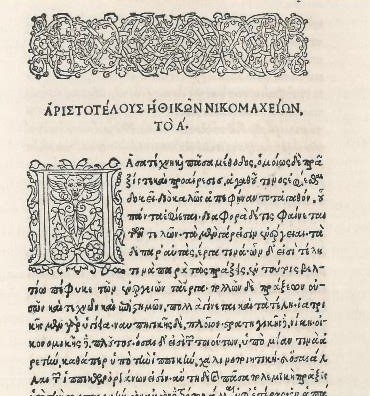 ἈΡΙΣΤΟΤΈΛΟΥΣ ἨΘΙΚΩ͂Ν ΝΙΚΟΜΑΧΕΊΩΝ,
ΤῸ Α'.
Πᾶσα τέχνη καὶ πᾶσα μέθοδος, ὁμοίως δὲ πρᾶ
ξίς τε καὶ προαίρεσις, ἀγαθοῦ τινος ἐφίεσθαι
δοκεῖ. διὸ καλῶς ἀπεφήναντο τἀγαθὸν, οὗ
πάντα ἐφίεται. διαφορὰ δέ τις φαίνεται
τῶν τελῶν. τὰ μὲν γάρ εἰσιν ἐνέργειαι. τὰ
δὲ παρ' αὐτὰς, ἔργα τινά. ὧν δ' εἰσὶ τέλη
τινὰ παρὰ τὰς πράξεις, ἐν τούτοις βελ
τίω πέφυκε τῶν ἐνεργειῶν τὰ ἔργα. πολλῶν δὲ πράξεων οὐ
σῶν καὶ τεχνῶν καὶ ἐπιστημῶν, πολλὰ γίνεται καὶ τὰ τέλη. ἰατρι
κῆς μὲν γὰρ ὑγίεια. ναυπηγικῆς δὲ, πλοῖον. στρατηγικῆς, νίκη. οἰκο
νομικῆς, πλοῦτος. ὅσαι δ' εἰσὶ τῶν τοιούτων, ὑπὸ μίαν τινὰ ἀ
ρετὴν, καθάπερ ὑπὸ τὴν ἱππικὴν, χαλινοποιητικὴ, καὶ ὅσαι ἄ
λλαι τῶν ἱππικῶν ὀργάνων εἰσίν. αὕτη δὲ καὶ πᾶσα πολεμικὴ πρᾶξις